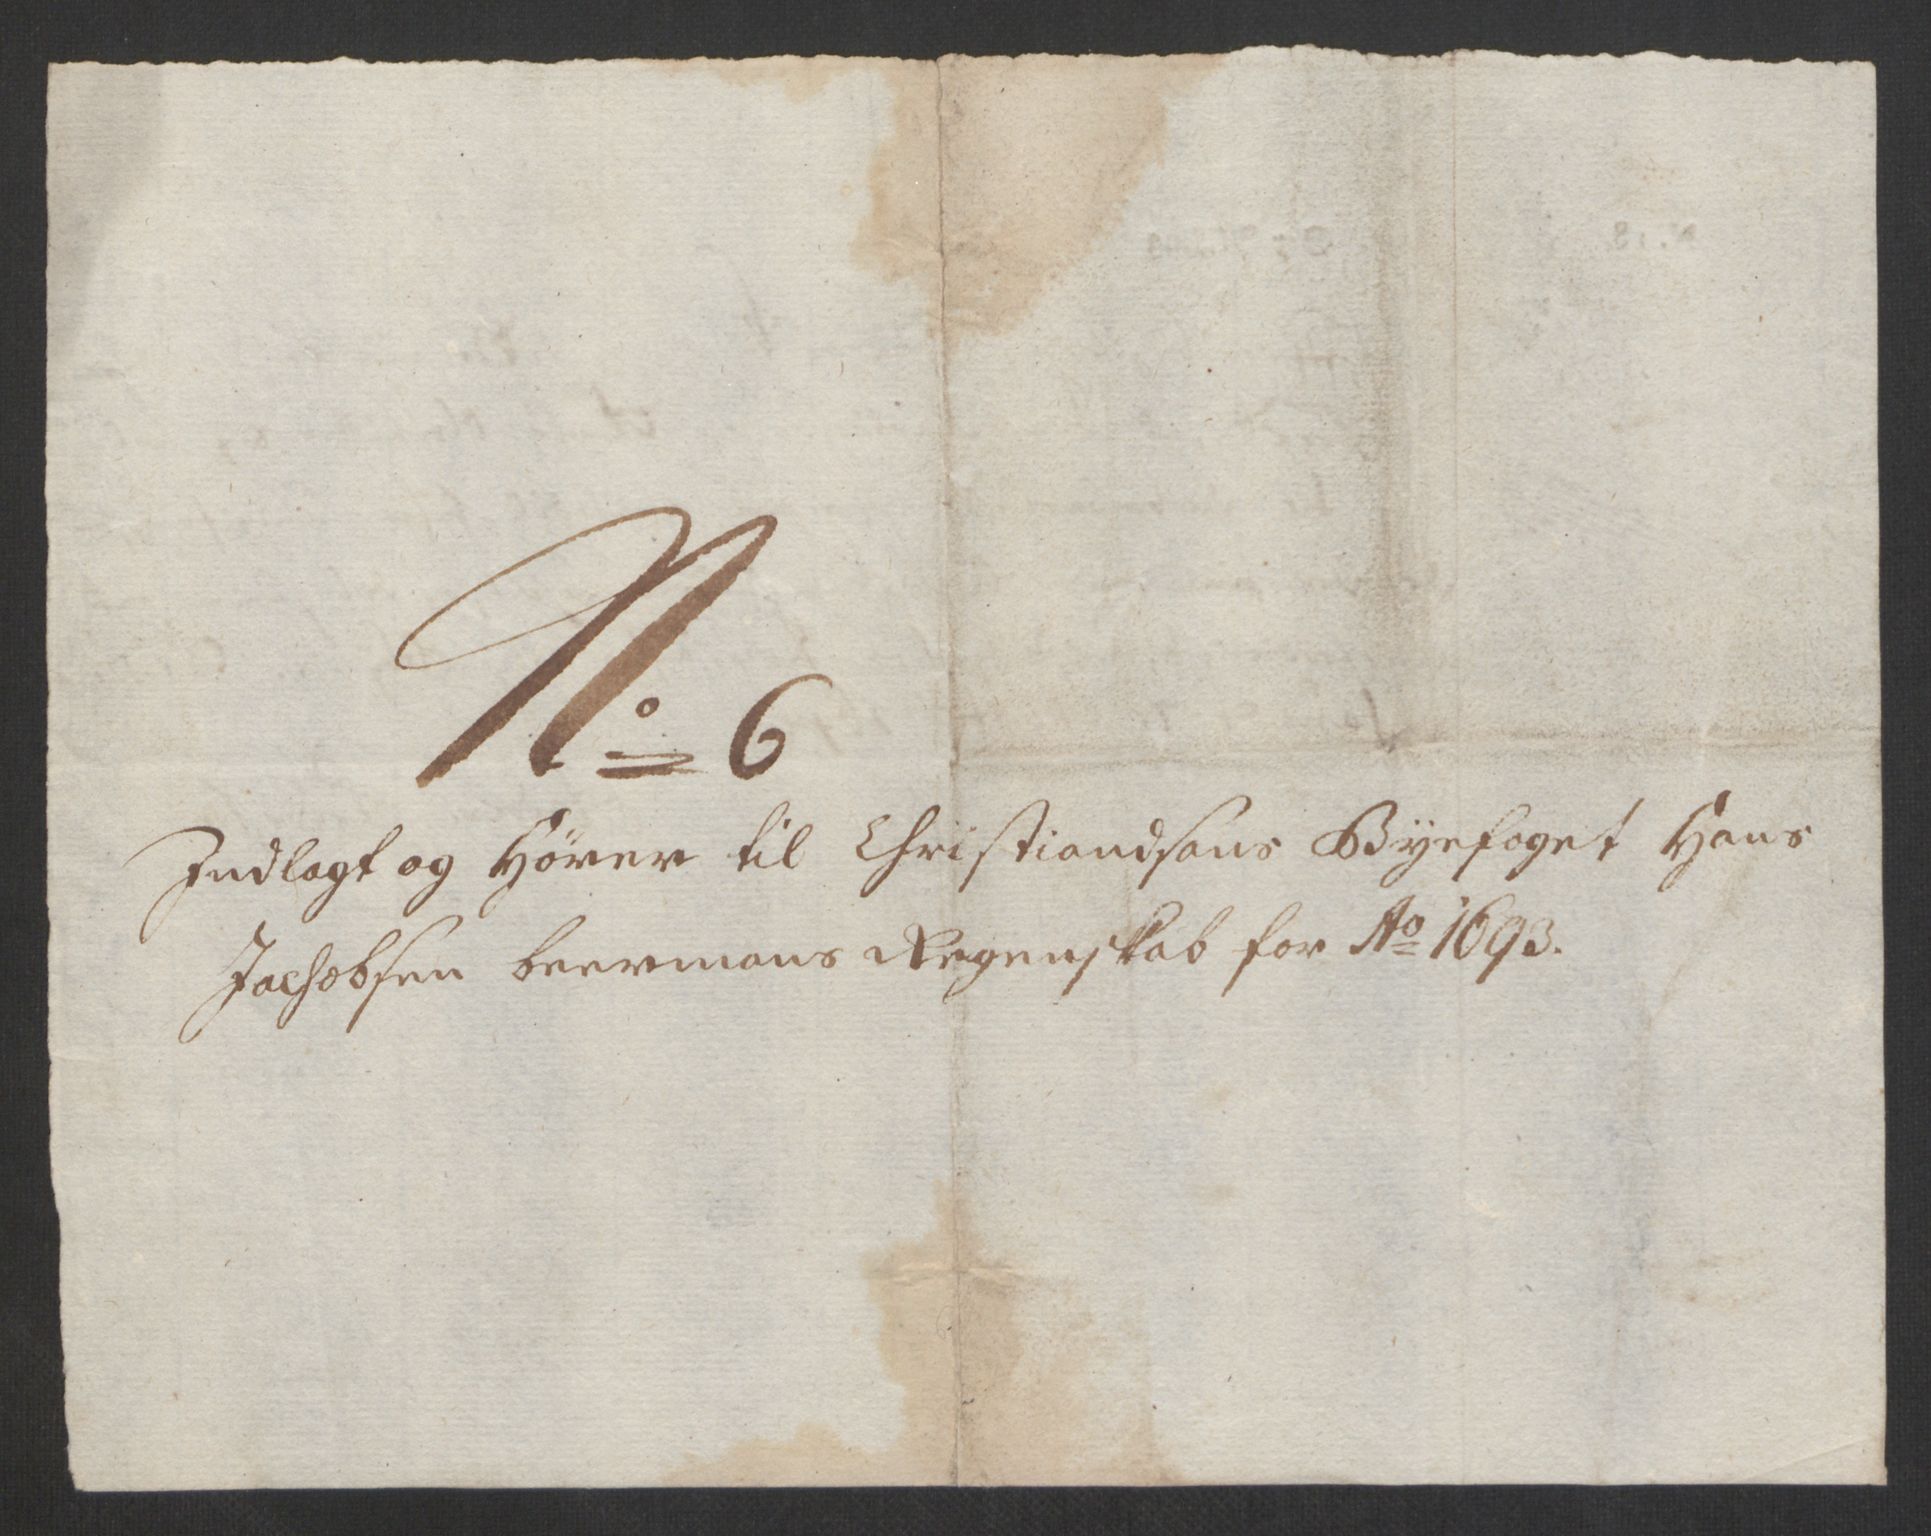 No 6
Indlagt og Hörer til Christiandsans Byefoget Hans
Jachobsen beermans Regenskab for Ao 1693.